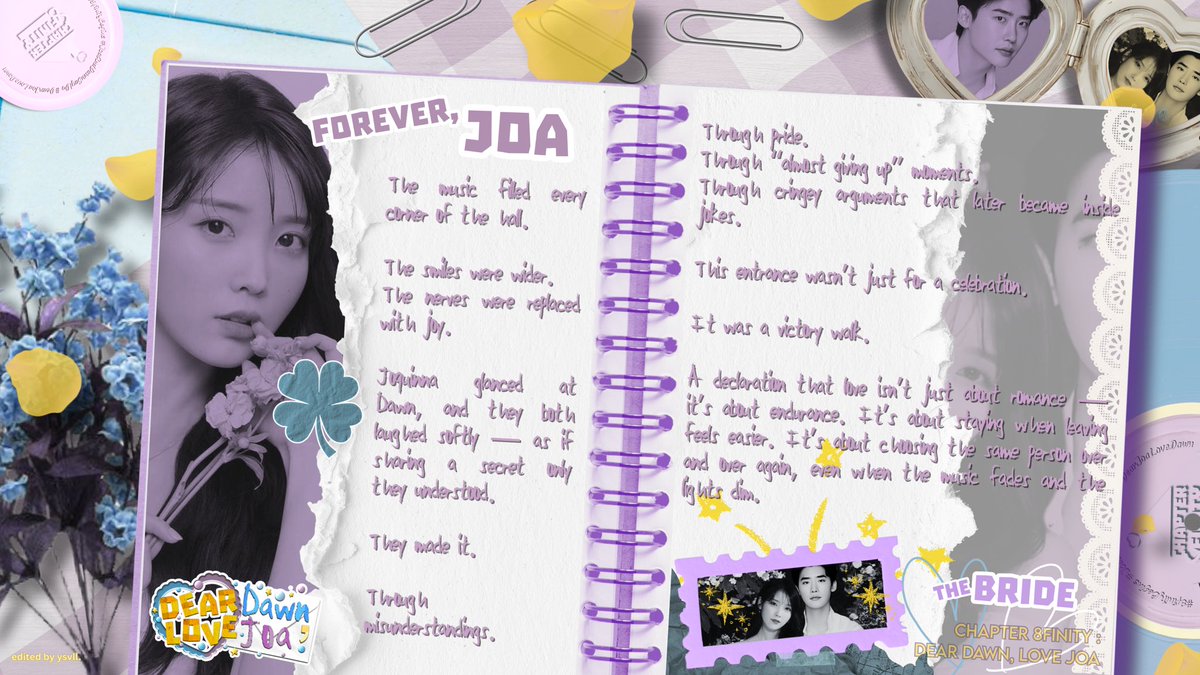 FOREVER, JOA
The music filled every
corner of the hall.
The smiles were wider.
The nerves were replaced
with joy.
Joquinna glanced at
Dawn, and they both
laughed softly — as if
sharing a secret only
they understood.
They made it.
Through
misunderstandings.
Through pride.
Through "almost giving up" moments.
Through cringey arguments that later became inside
jokes.
This entrance wasn't just for a celebration.
It was a victory walk.
A declaration that love isn't just about romance —
it's about endurance. It's about staying when leaving
feels easier. It's about choosing the same person over
and over again, even when the music fades and the
lights dim.
DEAR Dawn,
LOVE Joa
THE BRIDE
CHAPTER 8FINITY :
DEAR DAWN, LOVE JOA
edited by ysvll.